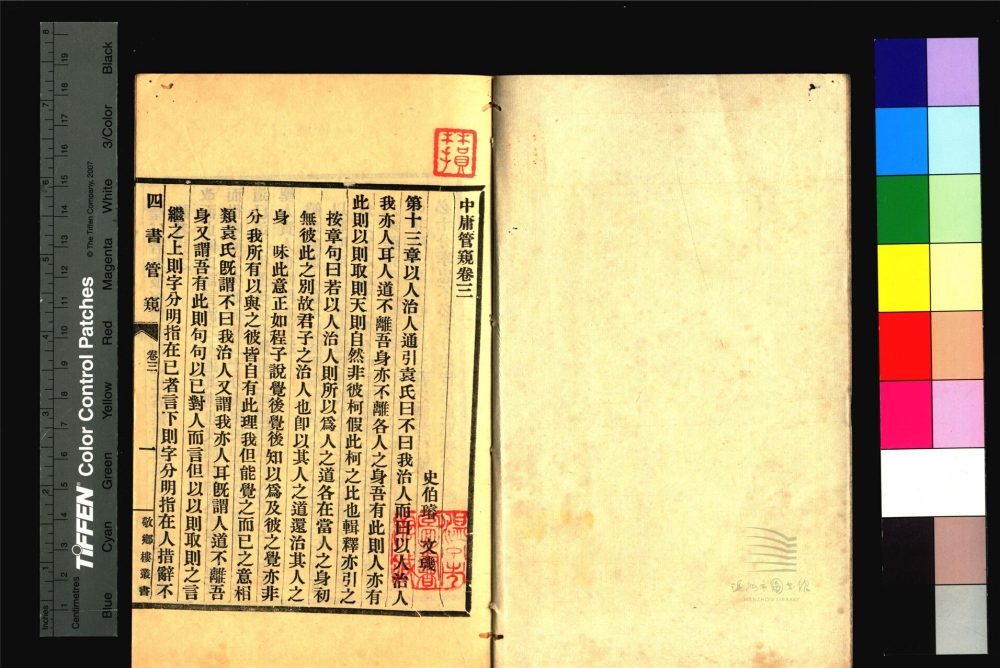 中庸管窺卷三
史伯璿 文璣
第十三章以人治人通引袁氏曰不曰我治人而曰以人治人
我亦人耳人道不離吾身亦不離各人之身吾有此則人亦有
此則以則取則天則自然非彼柯假此柯之比也輯釋亦引之
按章句曰若以人治人則所以爲人之道各在當人之身初
無彼此之別故君子之治人也卽以其人之道還治其人之
身 味此意正如程子說覺後覺後知以爲及彼之覺亦非
分我所有以與之彼皆自有此理我但能覺之而已之意相
類袁氏旣謂不曰我治人又謂我亦人耳旣謂人道不離吾
身又謂吾有此則句句以已對人而言但以以則取則之言
繼之上則字分明指在已者言下則字分明指在人措辭不
四書管窺
卷三
一
敬鄉樓叢書
Inches
Centimetres
TIFFEN® Color Control Patches
© The Tiffen Company, 2007
Blue Cyan Green Yellow Red Magenta White 3/Color Black
溫州市圖書館
WENZHOU LIBRARY